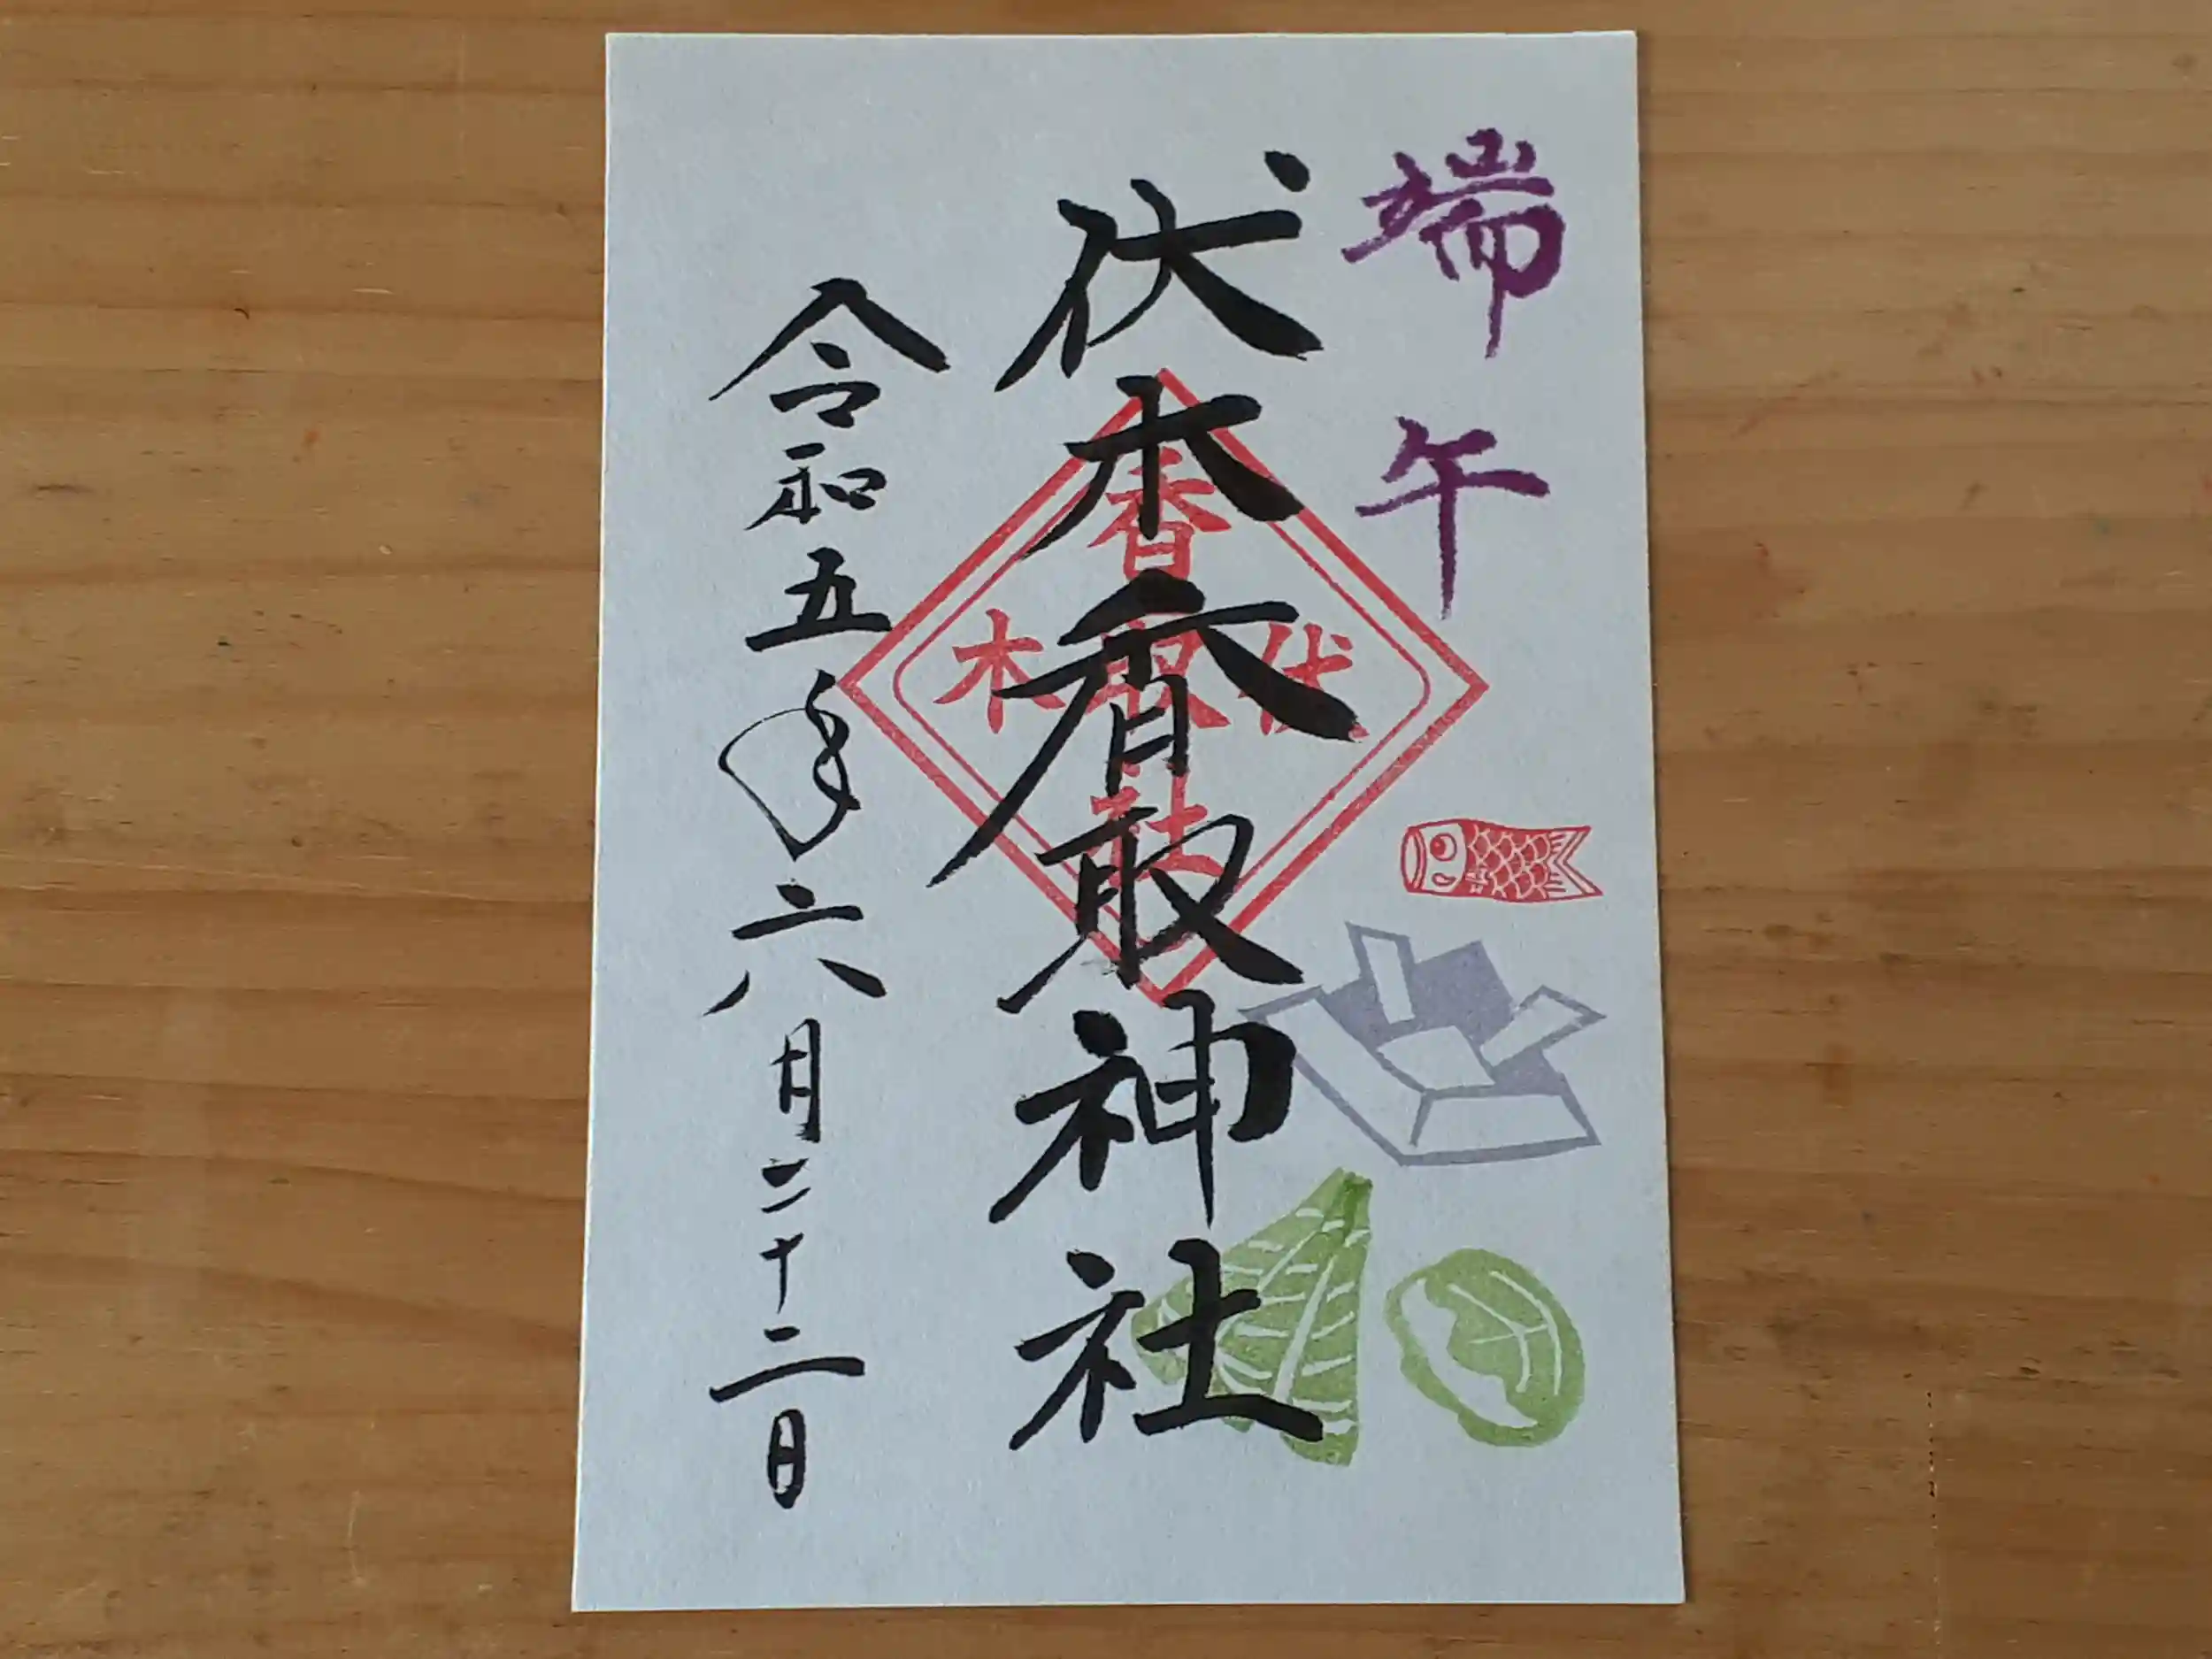 端午
伏木香取神社
香取社
伏木
令和五年六月二十二日